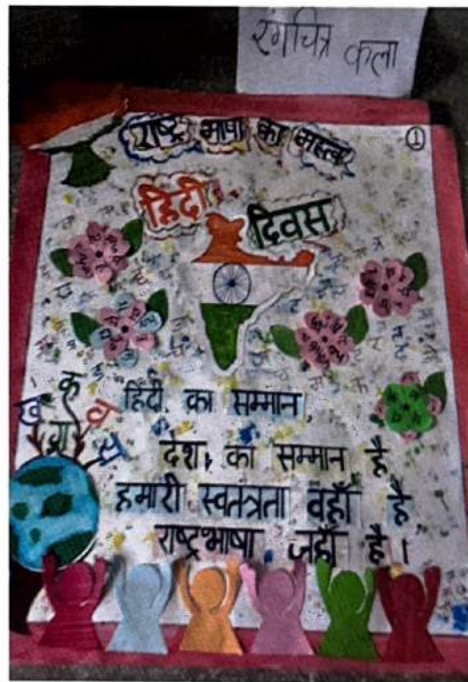 रंगचित्र कला
राष्ट्र भाषा का महत्व
①
हिंदी
दिवस
क
ख
ग
व
हिंदी का सम्मान,
देश का सम्मान है
हमारी स्वतंत्रता वहाँ है
राष्ट्रभाषा जहाँ है।